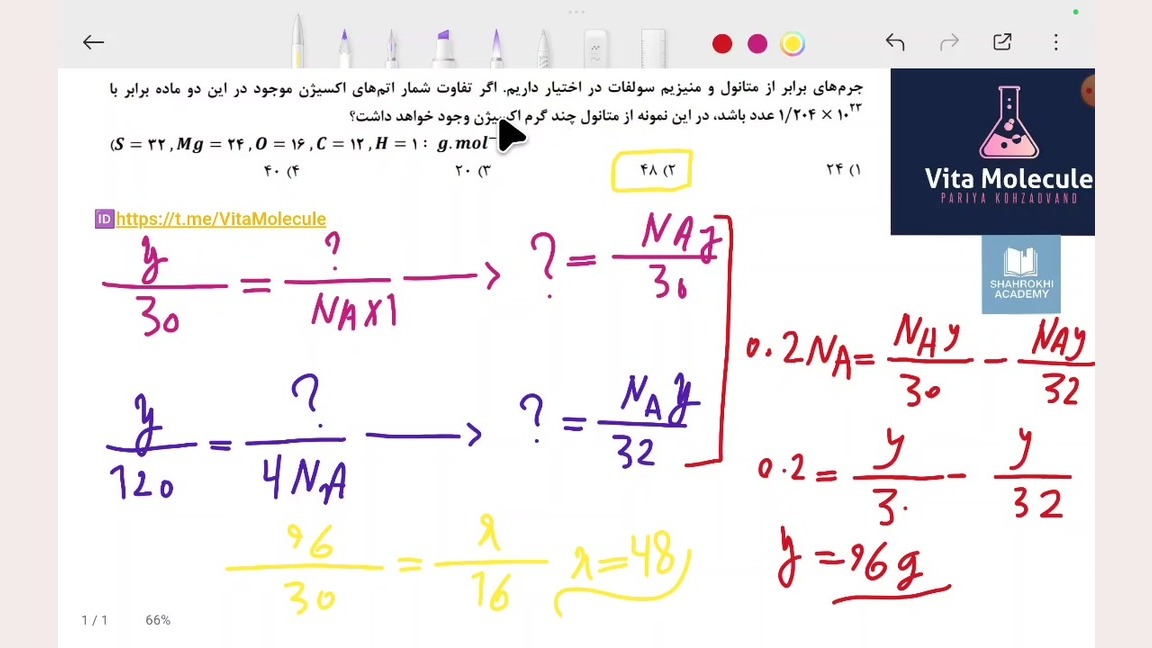 جرم‌های برابر از متانول و منیزیم سولفات در اختیار داریم. اگر تفاوت شمار اتم‌های اکسیژن موجود در این دو ماده برابر با
۱/۲۰۴ × ۱۰²³ عدد باشد، در این نمونه از متانول چند گرم اکسیژن وجود خواهد داشت؟
(S = ۳۲ , Mg = ۲۴ , O = ۱۶ , C = ۱۲ , H = ۱ : g.mol⁻
۱) ۲۴
۲) ۴۸
۳) ۲۰
۴) ۴۰
Vita Molecule
PARIYA KOHZADVAND
SHAHROKHI
ACADEMY
🆔https://t.me/VitaMolecule
y/30 = ?/NA×1 → ? = NAy/30
y/120 = ?/4NA → ? = NAy/32
0.2NA = NAy/30 − NAy/32
0.2 = y/3. − y/32
y = 96g
96/30 = x/16 x = 48
1 / 1
66%